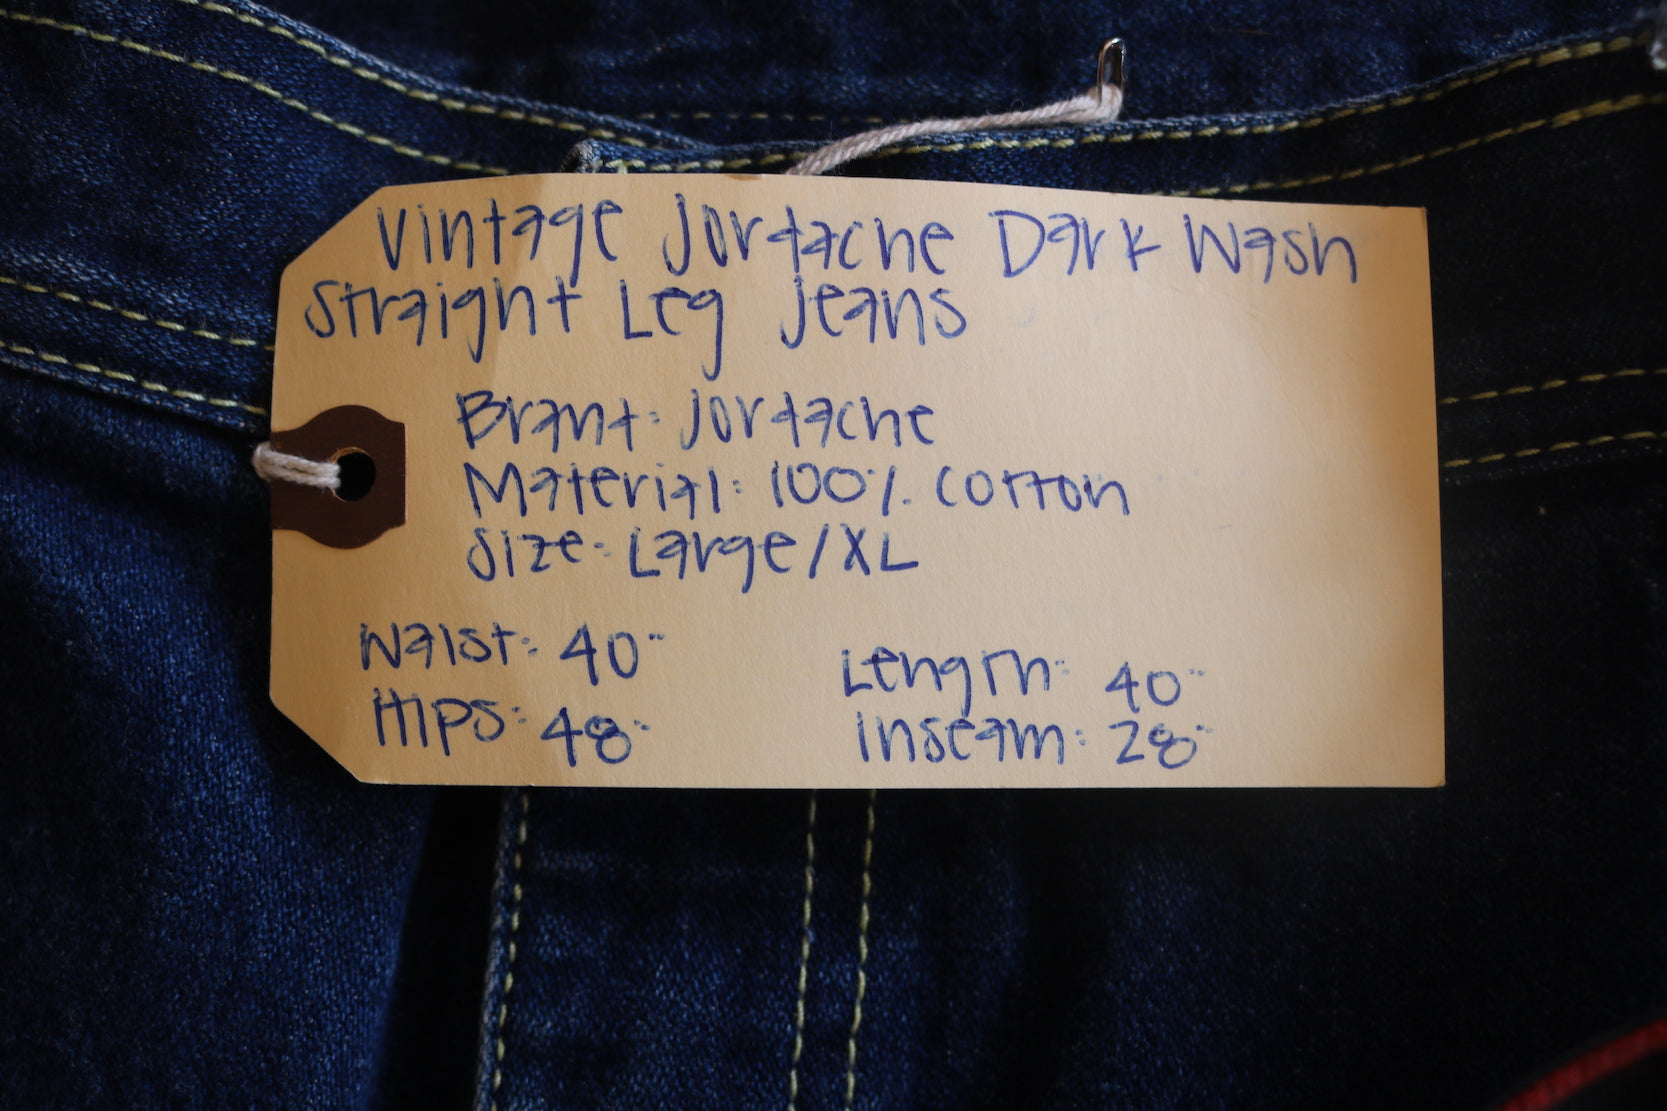 Vintage Jordache Dark Wash
Straight Leg Jeans
Brant: Jordache
Material: 100% Cotton
Size: Large/XL
Waist: 40"
Hips: 48"
Length: 40"
Inseam: 28"